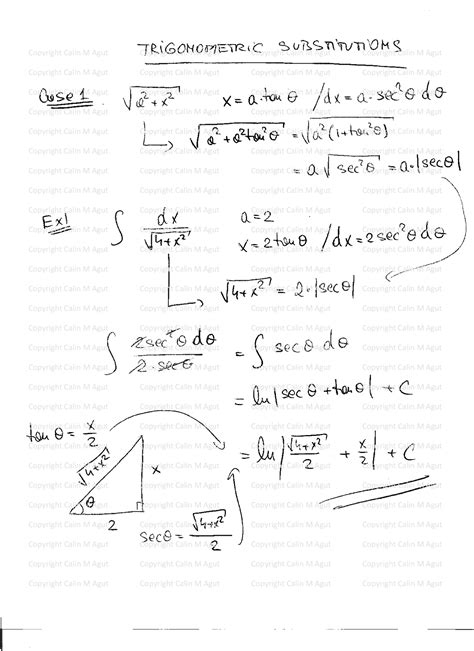 TRIGONOMETRIC SUBSTITUTIONS
Case 1 √(a²+x²) x = a·tanθ / dx = a·sec²θ dθ
↳ √(a²+a²tan²θ) = √(a²(1+tan²θ))
= a√(sec²θ) = a·|secθ|
Ex1 ∫ dx/√(4+x²) a=2
x = 2tanθ / dx = 2sec²θ dθ
↳ √(4+x²) = 2·|secθ|
∫ 2sec²θ dθ / 2·secθ = ∫ secθ dθ
= ln|secθ + tanθ| + C
tanθ = x/2
= ln|√(4+x²)/2 + x/2| + C
√(4+x²) x
θ
2
secθ = √(4+x²)/2
Copyright Calin M Agut